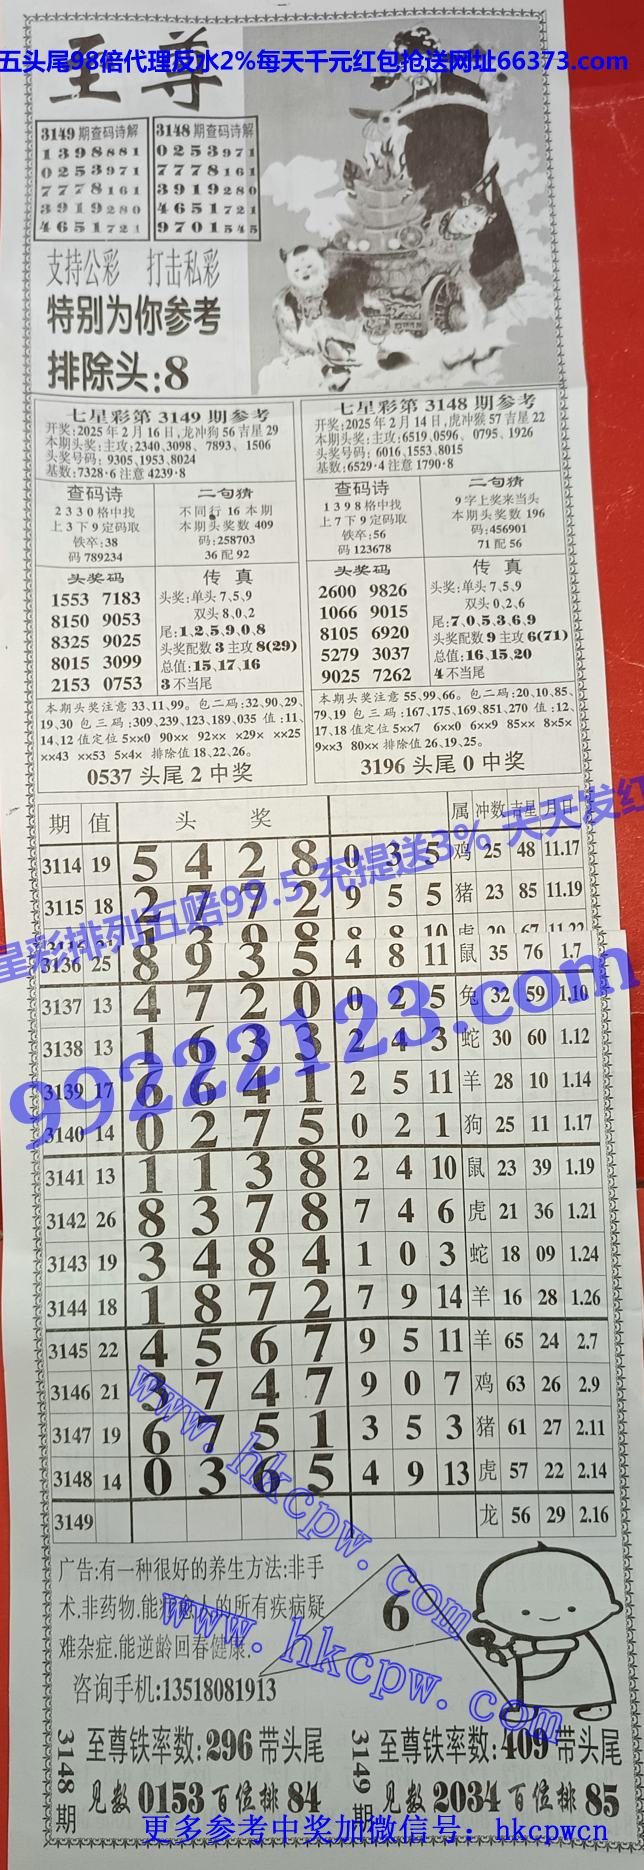 五头尾98倍代理反水2%每天千元红包抢送网址66373.com
至尊
3149期查码诗解
1 3 9 8 8 8 1
0 2 5 3 9 7 1
7 7 7 8 1 6 1
3 9 1 9 2 8 0
4 6 5 1 7 2 1
3148期查码诗解
0 2 5 3 9 7 1
7 7 7 8 1 6 1
3 9 1 9 2 8 0
4 6 5 1 7 2 1
9 7 0 1 5 4 5
支持公彩 打击私彩
特别为你参考
排除头:8
七星彩第3149期参考
开奖:2025年2月16日,龙冲狗56吉星29
本期头奖:主攻:2340、3098、7893、1506
头奖号码: 9305、1953、8024
基数:7328·6 注意 4239·8
查码诗
2 3 3 0 格中找
上 3 下 9 定码取
铁卒:38
码 789234
二句猜
不同行 16 本期
本期头奖数 409
码:258703
36 配 92
头奖码
1553 7183
8150 9053
8325 9025
8015 3099
2153 0753
传真
头奖:单头 7、5、9
双头 8、0、2
尾:1、2、5、9、0、8
头奖配数 3 主攻 8(29)
总值:15、17、16
3 不当尾
本期头奖注意 33、11、99。包二码:32、90、29、
19、30 包三码:309、239、123、189、035 值:11、
14、12 值定位 5××0 90×× 92×× ×29× ××25
××43 ××53 5×4× 排除值 18、22、26。
0537 头尾 2 中奖
七星彩第3148期参考
开奖:2025年2月14日,虎冲猴57吉星22
本期头奖:主攻:6519、0596、 0795、1926
头奖号码: 6016、1553、8015
基数:6529·4 注意 1790·8
查码诗
1 3 9 8 格中找
上 7 下 9 定码取
铁卒:56
码 123678
二句猜
9 字上奖来当头
本期头奖数 196
码:456901
71 配 56
头奖码
2600 9826
1066 9015
8105 6920
5279 3037
9025 7262
传真
头奖:单头 7、5、9
双头 0、2、6
尾:7、0、5、3、6、9
头奖配数 9 主攻 6(71)
总值:16、15、20
4 不当尾
本期头奖注意 55、99、66。包二码:20、10、85、
79、19 包三码:167、175、169、851、270 值:12、
17、18 值定位 5××7 6××0 6××9 85×× 8×5×
9××3 80×× 排除值 26、19、25。
3196 头尾 0 中奖
期 值 头奖 属 冲数 吉星 月日
3114 19 5 4 2 8 0 3 5 鸡 25 48 11.17
3115 18 2 7 7 2 9 5 5 猪 23 85 11.19
3136 25 8 9 3 5 4 8 11 鼠 35 76 1.7
3137 13 4 7 2 0 0 2 5 兔 32 59 1.10
3138 13 1 6 3 3 2 4 3 蛇 30 60 1.12
3139 17 6 6 4 1 2 5 11 羊 28 10 1.14
3140 14 0 2 7 5 0 2 1 狗 25 11 1.17
3141 13 1 1 3 8 2 4 10 鼠 23 39 1.19
3142 26 8 3 7 8 7 4 6 虎 21 36 1.21
3143 19 3 4 8 4 1 0 3 蛇 18 09 1.24
3144 18 1 8 7 2 7 9 14 羊 16 28 1.26
3145 22 4 5 6 7 9 5 11 羊 65 24 2.7
3146 21 3 7 4 7 9 0 7 鸡 63 26 2.9
3147 19 6 7 5 1 3 5 3 猪 61 27 2.11
3148 14 0 3 6 5 4 9 13 虎 57 22 2.14
3149 龙 56 29 2.16
星彩排列五赔99.5 充提送3% 天天发红
99222123.com
www.hkcpw.com
www.hkcpw.com
广告:有一种很好的养生方法:非手
术.非药物.能 的所有疾病疑
难杂症.能逆龄回春健康.
咨询手机:13518081913
6
3148期
至尊铁率数:296带头尾
见数0153百位排84
3149期
至尊铁率数:409带头尾
见数2034百位排85
更多参考中奖加微信号：hkcpwcn